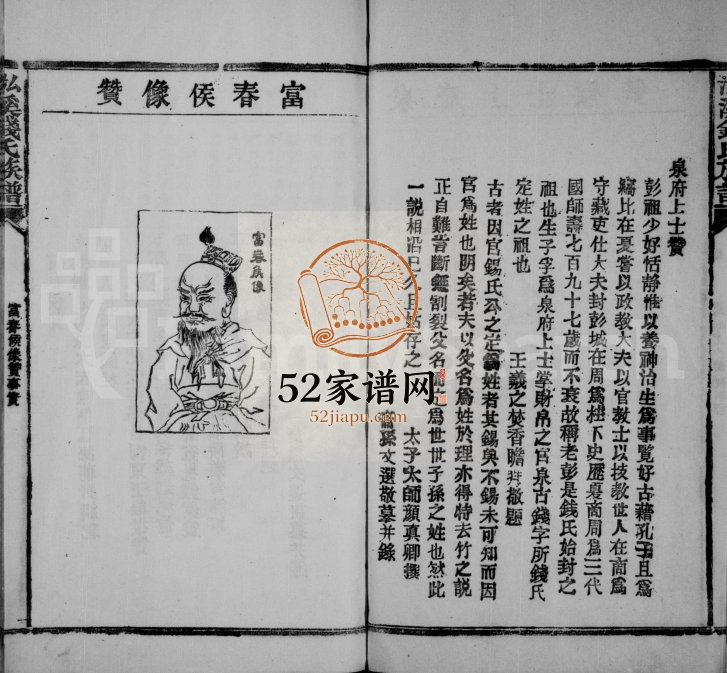 泉府上士贊
彭祖少好恬靜惟以養神治生為事覽好古藉孔子且為
竊比在夏嘗以政教大夫以官教士以技教世人在商為
守藏吏仕大夫封彭城在周為柱下史歷夏商周為三代
國師壽七百九十七歲而不衰故稱老彭是錢氏始封之
祖也生子孚為泉府上士掌財帛之官泉古錢字所錢氏
定姓之祖也
王羲之焚香瞻拜敬題
古者因官錫氏公之定為姓者其錫與不錫未可知而因
官為姓也明矣者夫以父名為姓於理亦得特去竹之說
正自難言斷繼割裂父名 為世世子孫之姓也然此
一說相沿已 且 存之
太子太師顏真卿撰
裔孫文選敬摹并錄
富春侯像贊
富春侯像
弘溪錢氏族譜
富春侯像贊事實
52家谱网
52jiapu.com